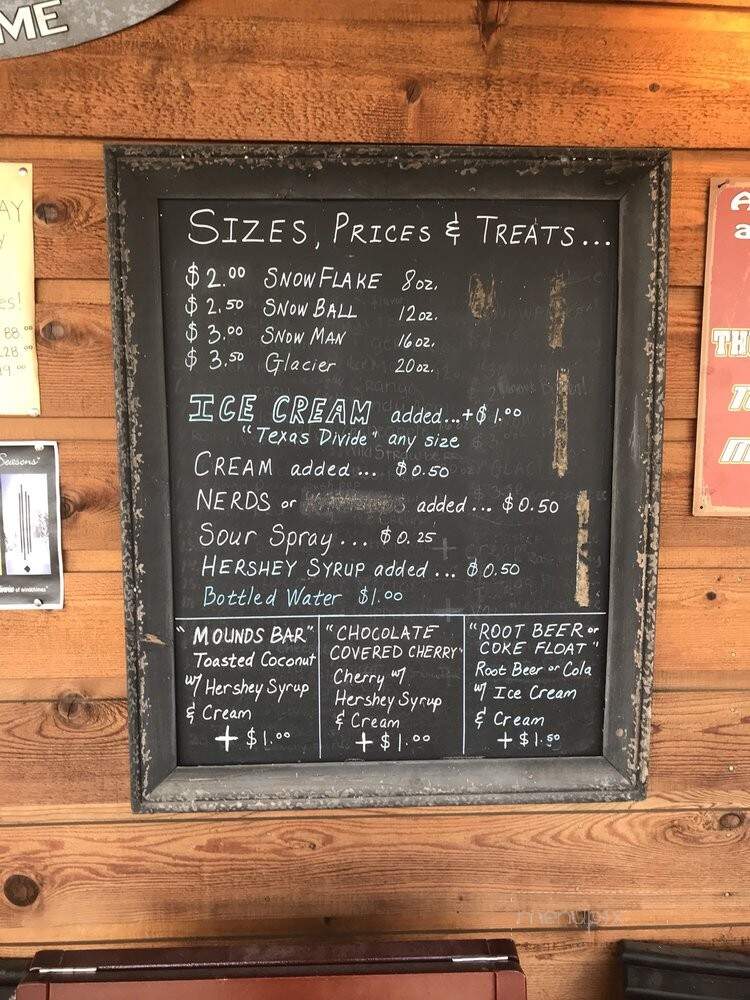 ME
SIZES, PRICES & TREATS...
$2.00 SNOW FLAKE 8oz.
$2.50 SNOW BALL 12oz.
$3.00 SNOW MAN 16oz.
$3.50 Glacier 20oz.
ICE CREAM added...+$1.00
"Texas Divide" any size
CREAM added... $0.50
NERDS or added... $0.50
Sour Spray... $0.25
HERSHEY SYRUP added... $0.50
Bottled Water $1.00
"MOUNDS BAR"
Toasted Coconut
w/ Hershey Syrup
& Cream
+ $1.00
"CHOCOLATE
COVERED CHERRY"
Cherry w/
Hershey Syrup
& Cream
+ $1.00
"ROOT BEER or
COKE FLOAT"
Root Beer or Cola
w/ Ice Cream
& Cream
+ $1.50
Seasons"
menupix